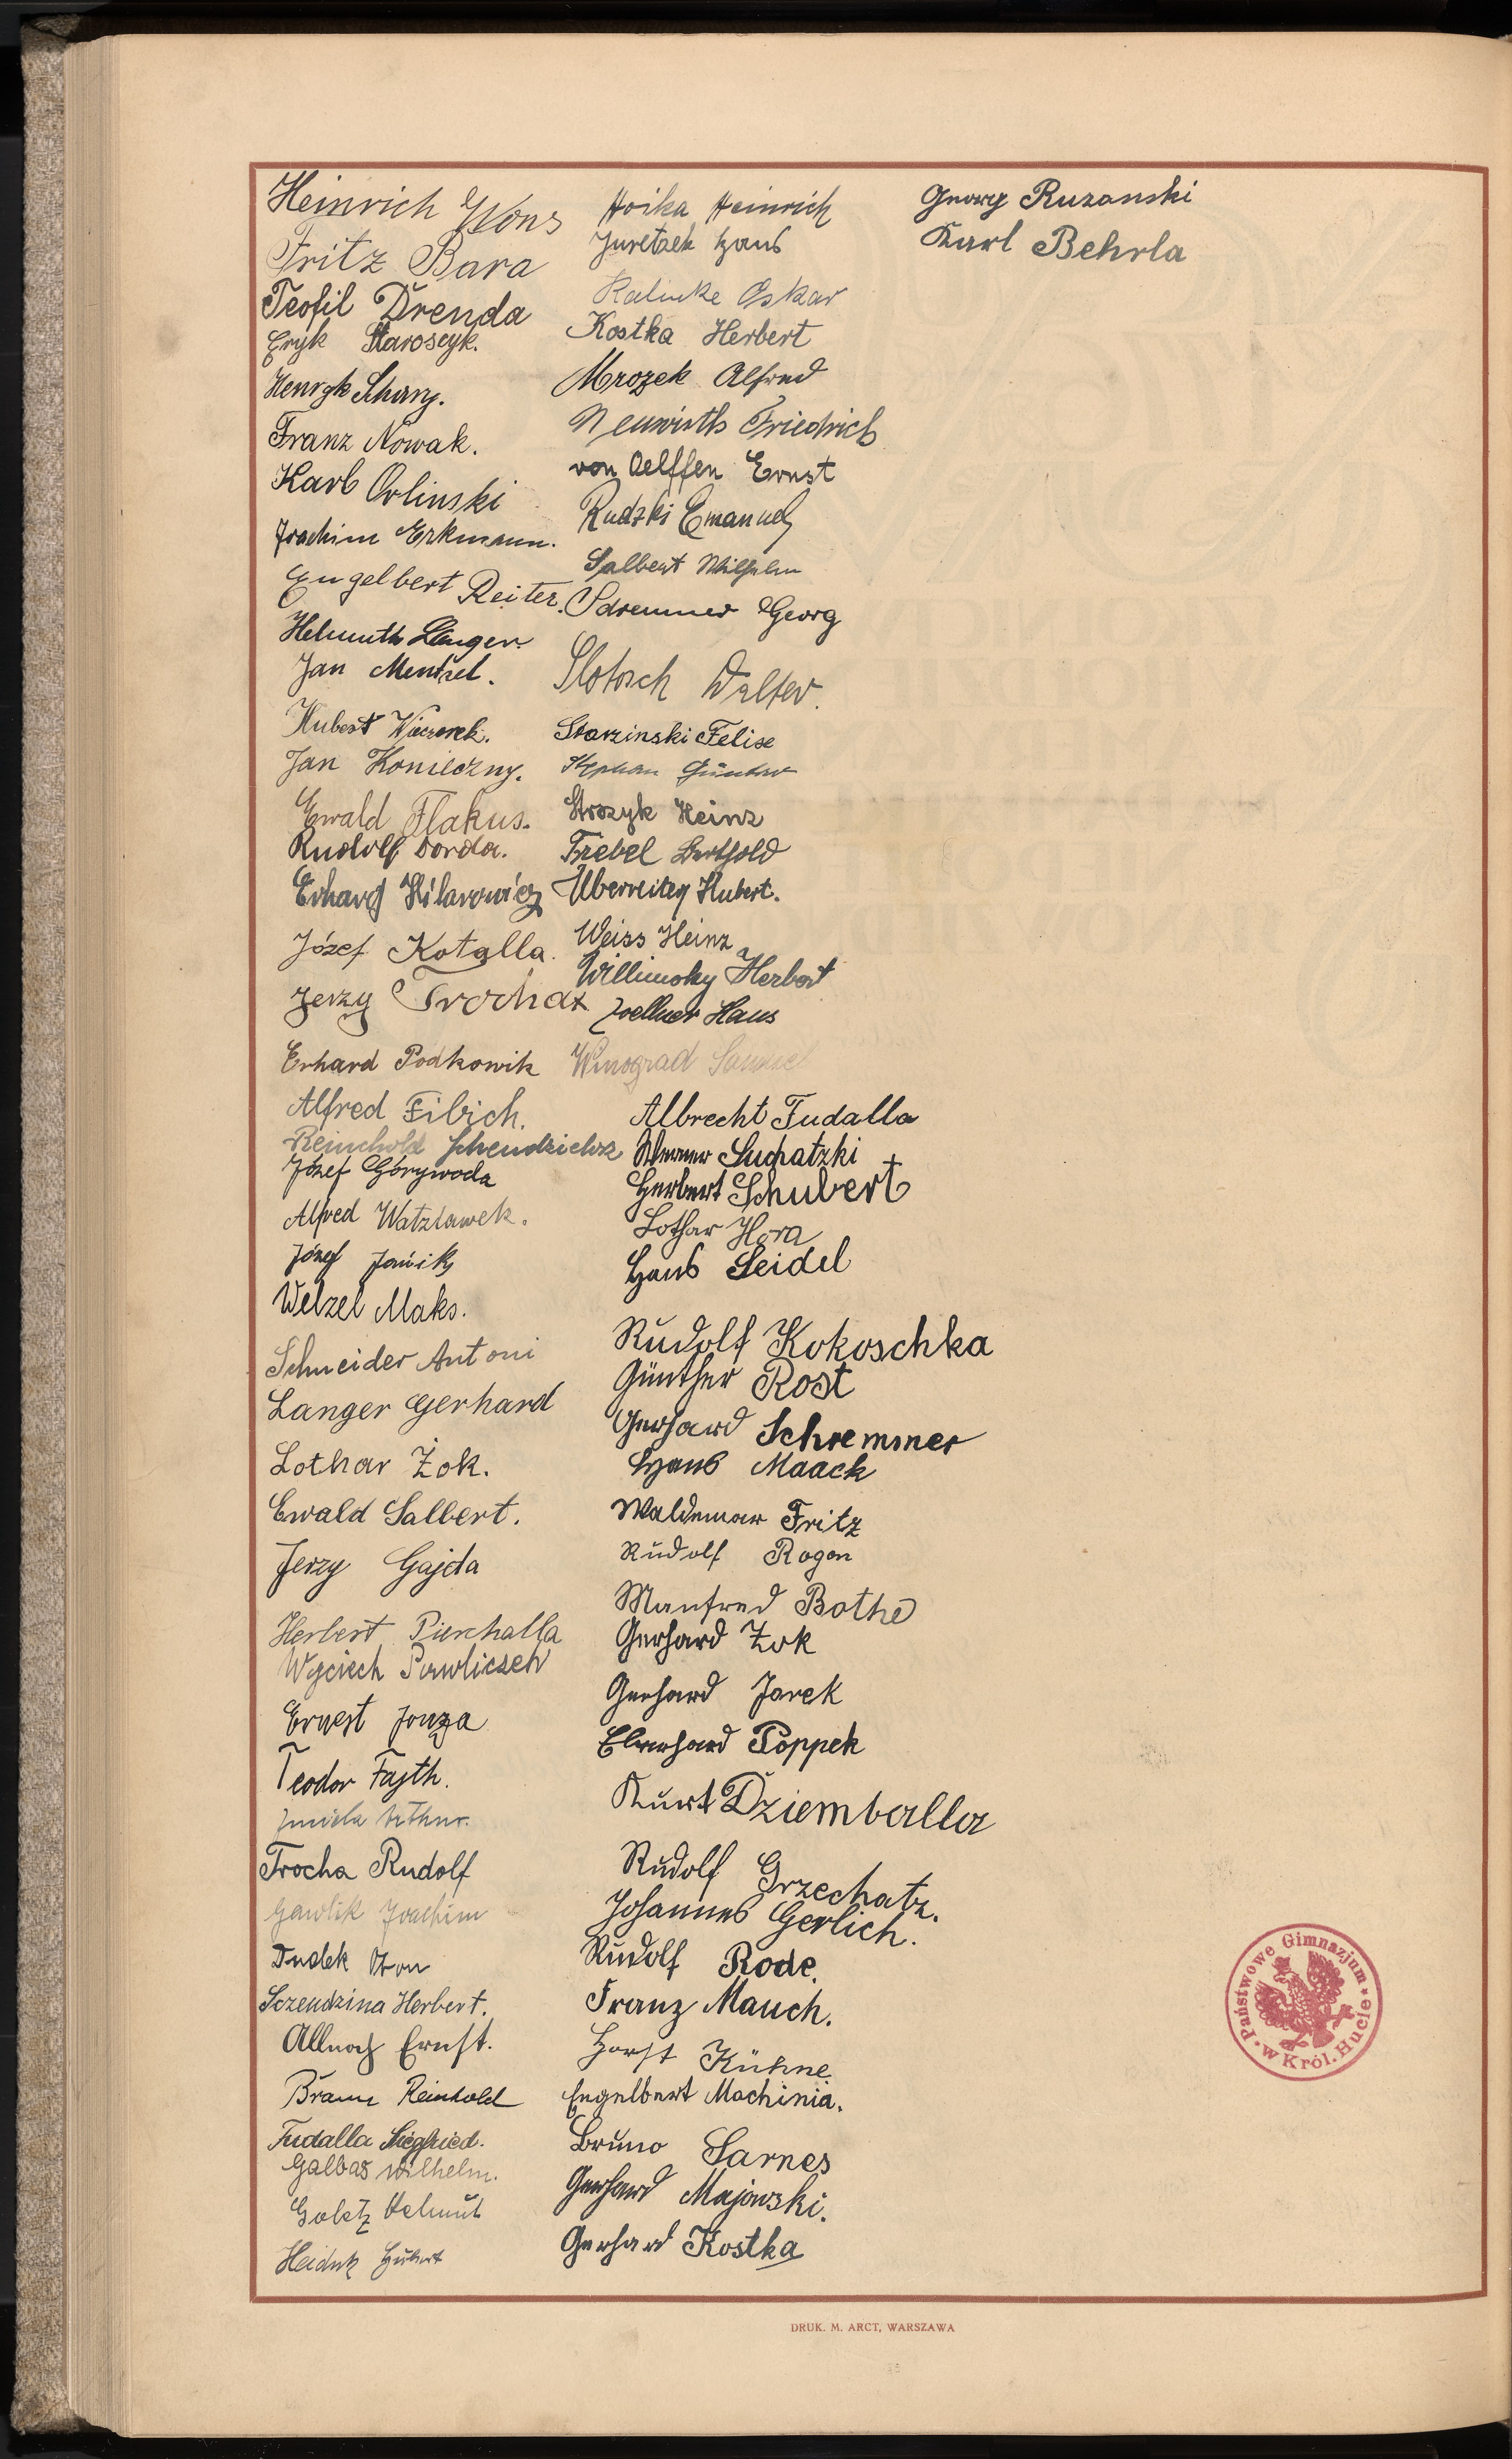 Heinrich Wons
Fritz Bara
Teofil Drenda
Eryk Staroscyk.
Henryk
Franz Nowak.
Karl Orlinski
Joachim Erkmann.
Engelbert Reiter.
Helmuth Langer.
Jan Mentzel.
Hubert Wieczorek.
Jan Konieczny.
Ewald Flakus.
Rudolf Dorda.
Erhard Hilarowicz
Józef Kotalla.
Jerzy Trocha
Erhard Podkowik
Alfred Fibich.
Reinhold
Józef Górywoda
Alfred Watzlawek.
Józef Janik
Welzel Maks.
Schneider Antoni
Langer Gerhard
Lothar Żok.
Ewald Salbert.
Jerzy Gajda
Herbert Pierchalla
Wojciech
Ernest Jonza
Teodor Fajth.
Trocha Rudolf
Gawlik Joachim
Dudek Oton
Sczendzina Herbert.
Allnoch Ernst.
Braun Reinhold
Fudalla Siegfried.
Galbas Wilhelm.
Goletz Helmut
Heiduk Hubert
Hoika Heinrich
Juretzek Hans
Kalinke Oskar
Kostka Herbert
Mrozek Alfred
Neuwirth Friedrich
von Oelffen Ernst
Rudzki Emanuel
Salbert Wilhelm
Georg
Slotosch Walter.
Starzinski Felise
Stephan Günter
Strozyk Heinz
Trebel Berthold
Überreiter Hubert.
Weiss Heinz
Willimsky Herbert
Zoellner Hans
Winograd Samuel
Albrecht Fudalla
Werner Suchatzki
Herbert Schubert
Lothar Hora
Hans Seidel
Rudolf Kokoschka
Günther Rost
Gerhard Schremmer
Hans Maack
Waldemar Fritz
Rudolf Rogon
Manfred Bothe
Gerhard Żok
Gerhard Jarek
Eberhard Poppek
Kurt Dziemballa
Rudolf Grzechatz.
Johannes Gerlich.
Rudolf Rode.
Franz Mauch.
Horst Kühne
Engelbert Machinia.
Bruno Sarnes
Gerhard Majowski.
Gerhard Kostka
Georg Ruzanski
Karl Behrla
Państwowe Gimnazjum w Król. Hucie
DRUK. M. ARCT, WARSZAWA